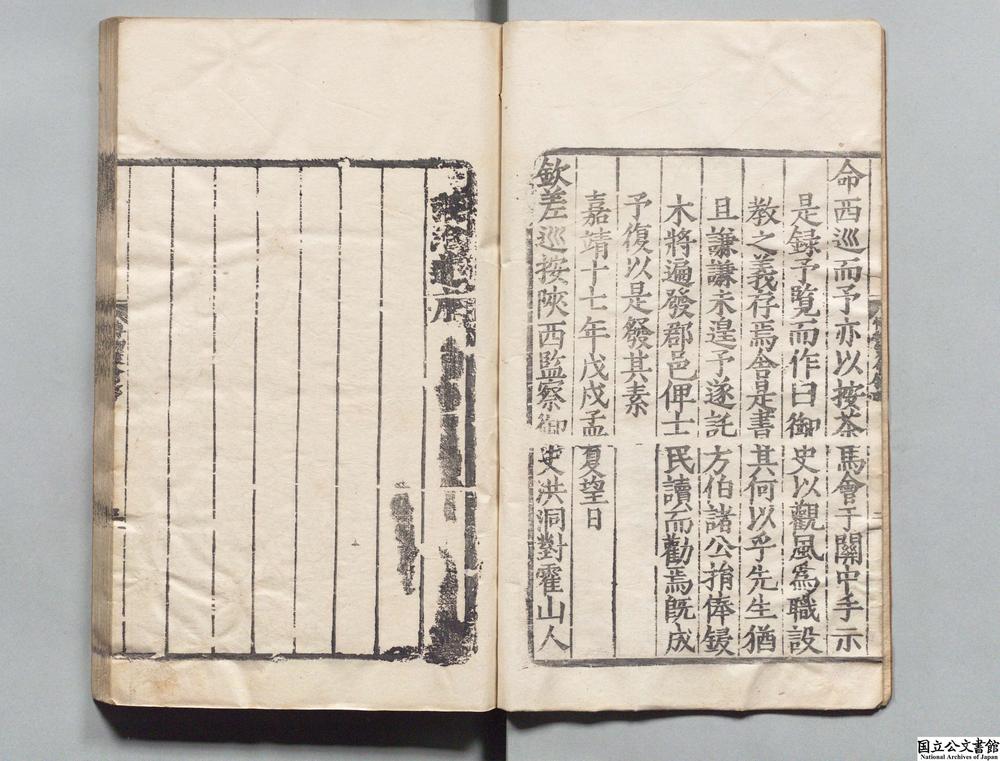 命西巡而予亦以按茶馬會于關中手示
是録予覽而作曰御史以觀風爲職設
教之義存焉舍是書其何以乎先生猶
且謙謙未遑予遂託方伯諸公捐俸鋟
木將遍發郡邑俾士民讀而勸焉旣成
予復以是發其素
嘉靖十七年戊戌孟夏望日
欽差巡按陝西監察御史洪洞對霍山人
国立公文書館
National Archives of Japan